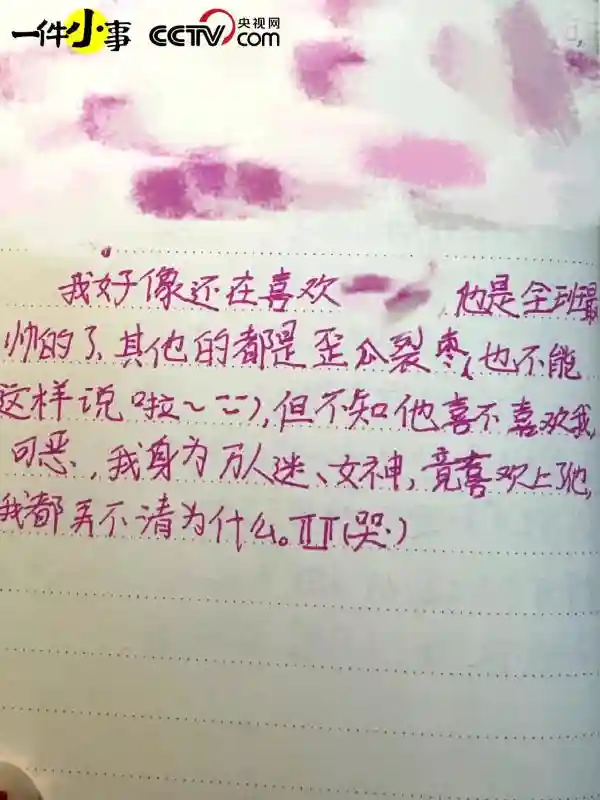 一件小事 CCTV 央视网
com
我好像还在喜欢 ,他是全班最
帅的了、其他的都是歪瓜裂枣,也不能
这样说啦~二二),但不知他喜不喜欢我,
可恶、,我身为万人迷、女神,竟喜欢上他,
我都弄不清为什么。TTTT(哭·)